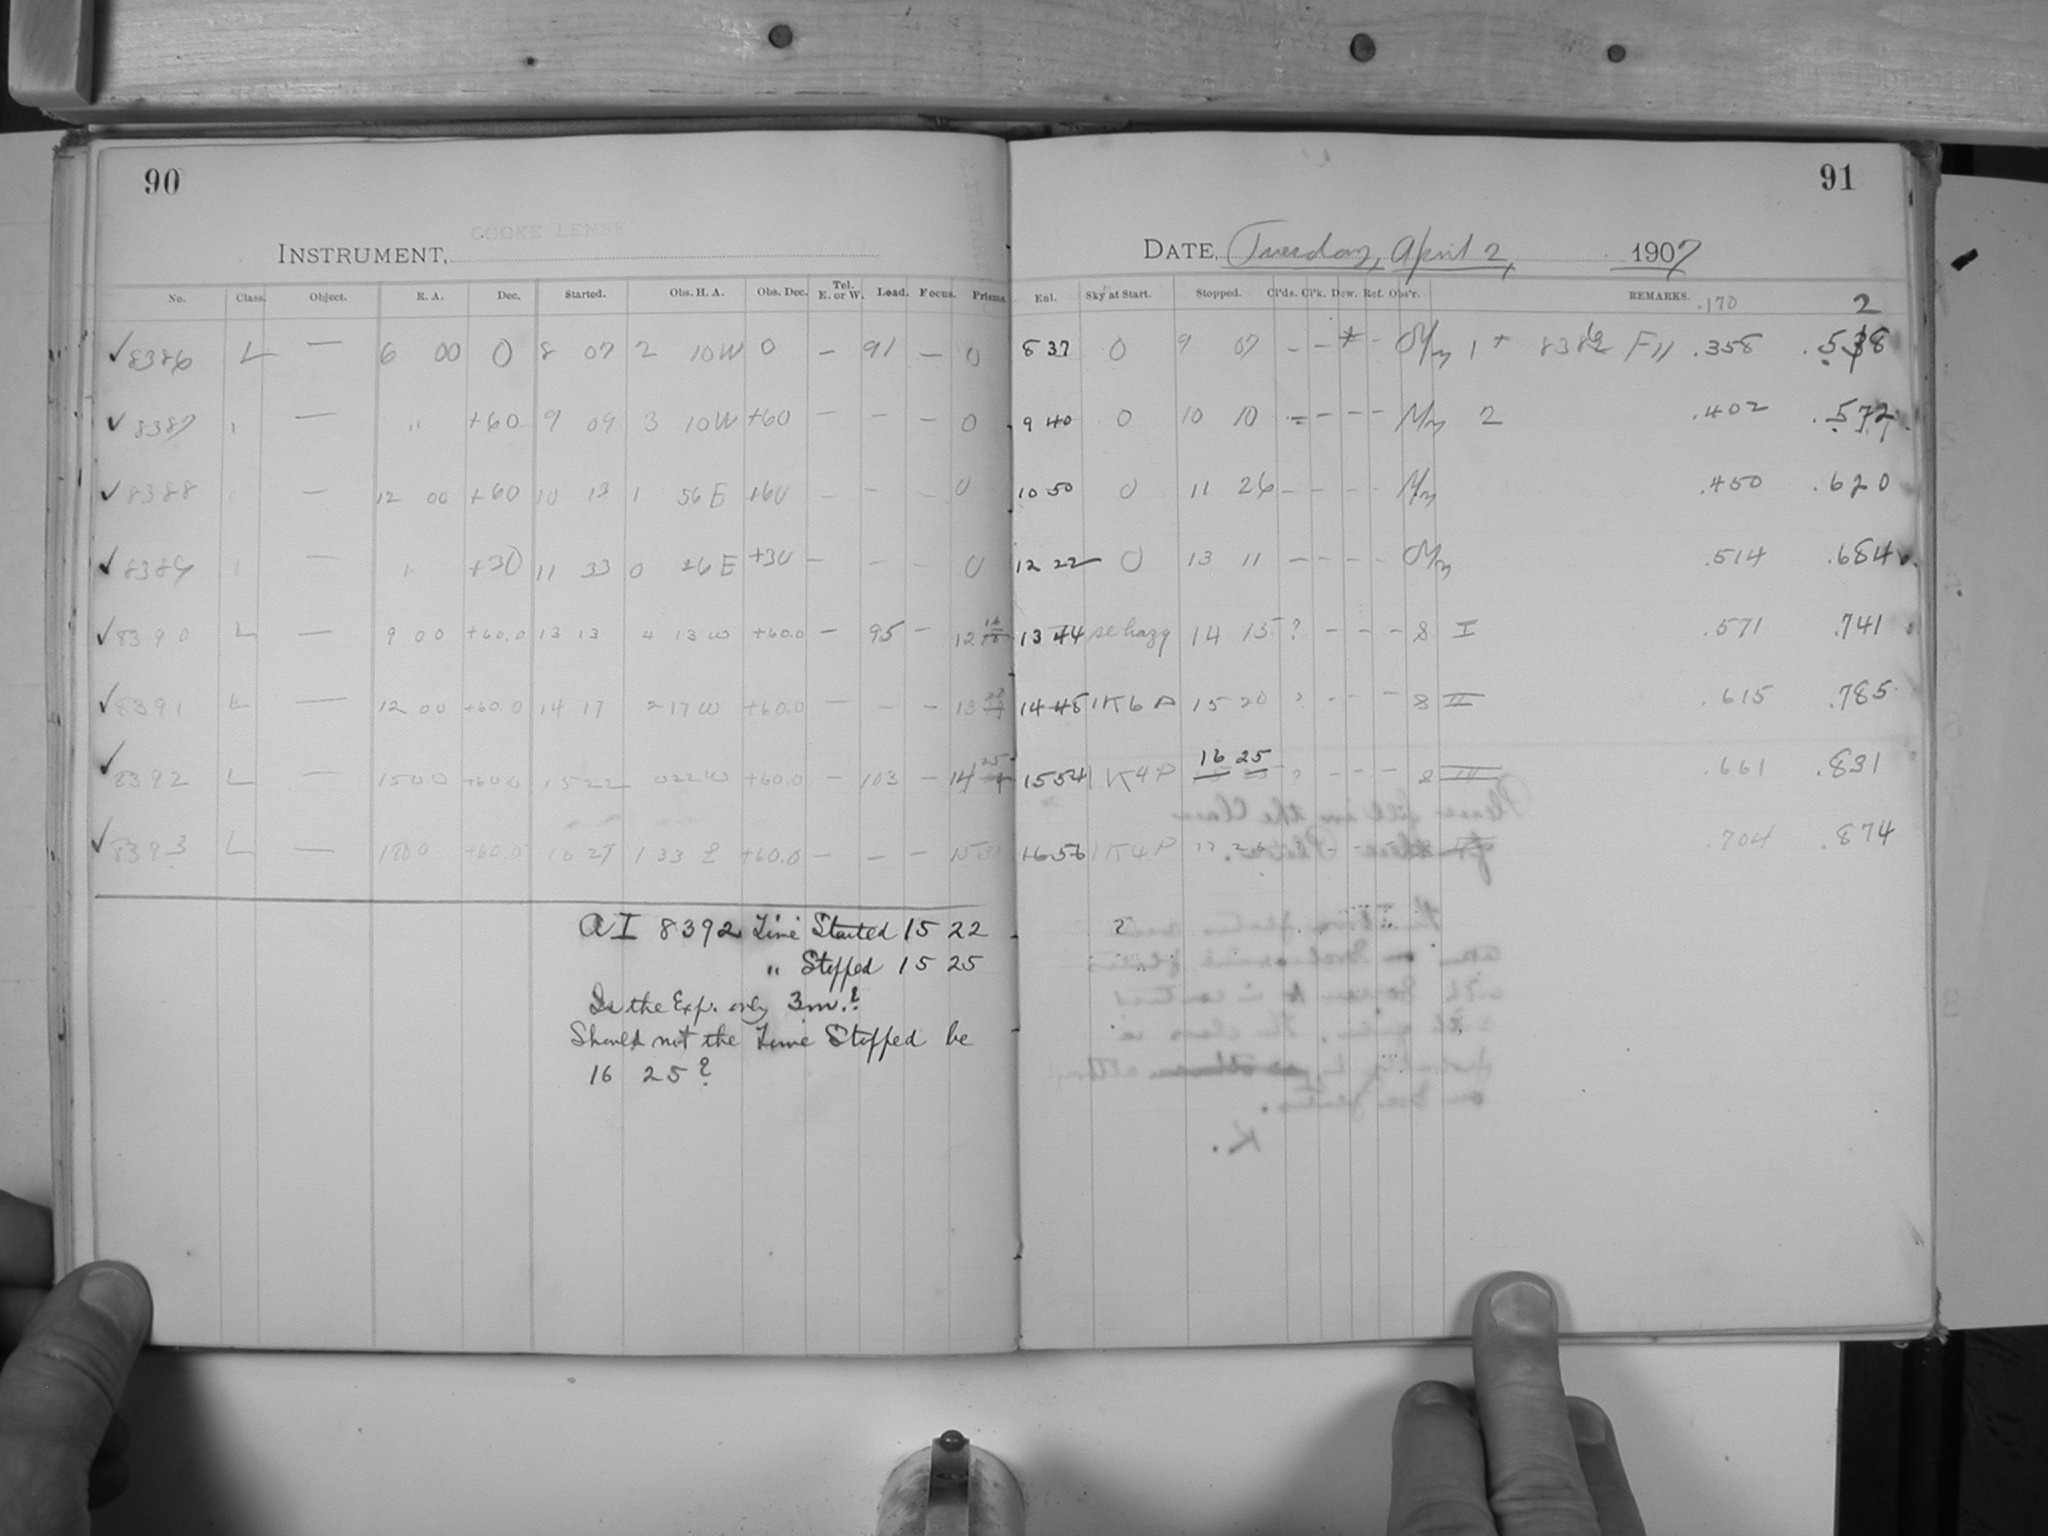 90
COOKE LENSE
INSTRUMENT,
No. Class. Object. R. A. Dec. Started. Obs. H. A. Obs. Dec. Tel. E. or W. Load. Focus. Prisms.
✓ 8386 L — 6 00 0 8 07 2 10W 0 — 91 — 0
✓ 8387 " — " +60 9 09 3 10W +60 — — — 0
✓ 8388 " — 12 00 +60 10 13 1 56 E +60 — — — 0
✓ 8389 " — " +30 11 33 0 26 E +30 — — — 0
✓ 8390 L — 9 00 +60.0 13 13 4 13 W +60.0 — 95 — 12
✓ 8391 L — 12 00 +60.0 14 17 2 17 W +60.0 — — — 13
✓ 8392 L — 15 00 +60.0 15 22 0 22 W +60.0 — 103 — 14
✓ 8393 L — 18 00 +60.0 16 27 1 33 E +60.0 — — — 15
AI 8392 Time Started 15 22
" Stopped 15 25
Is the Exp. only 3m.?
Should not the Time Stopped be
16 25?
91
DATE, Tuesday, April 2, 1907
Eal. Sky at Start. Stopped. Cl'ds. Cl'k. Dew. Ref. Obs'r. REMARKS. .170 2
8 37 0 9 07 — — * - 1 * 8386 .358 .528
9 40 0 10 10 = — — — 2 .402 .572
10 50 0 11 26 — — — — .450 .620
12 22 0 13 11 — — — — .514 .684
13 44 se hazy 14 15 ? — — — 8 I .571 .741
14 48 1K6P 15 20 ? — — — 8 II .615 .785
15 54 1K4P 16 25 ? — — — 8 III .661 .831
16 56 1K4P .704 .874